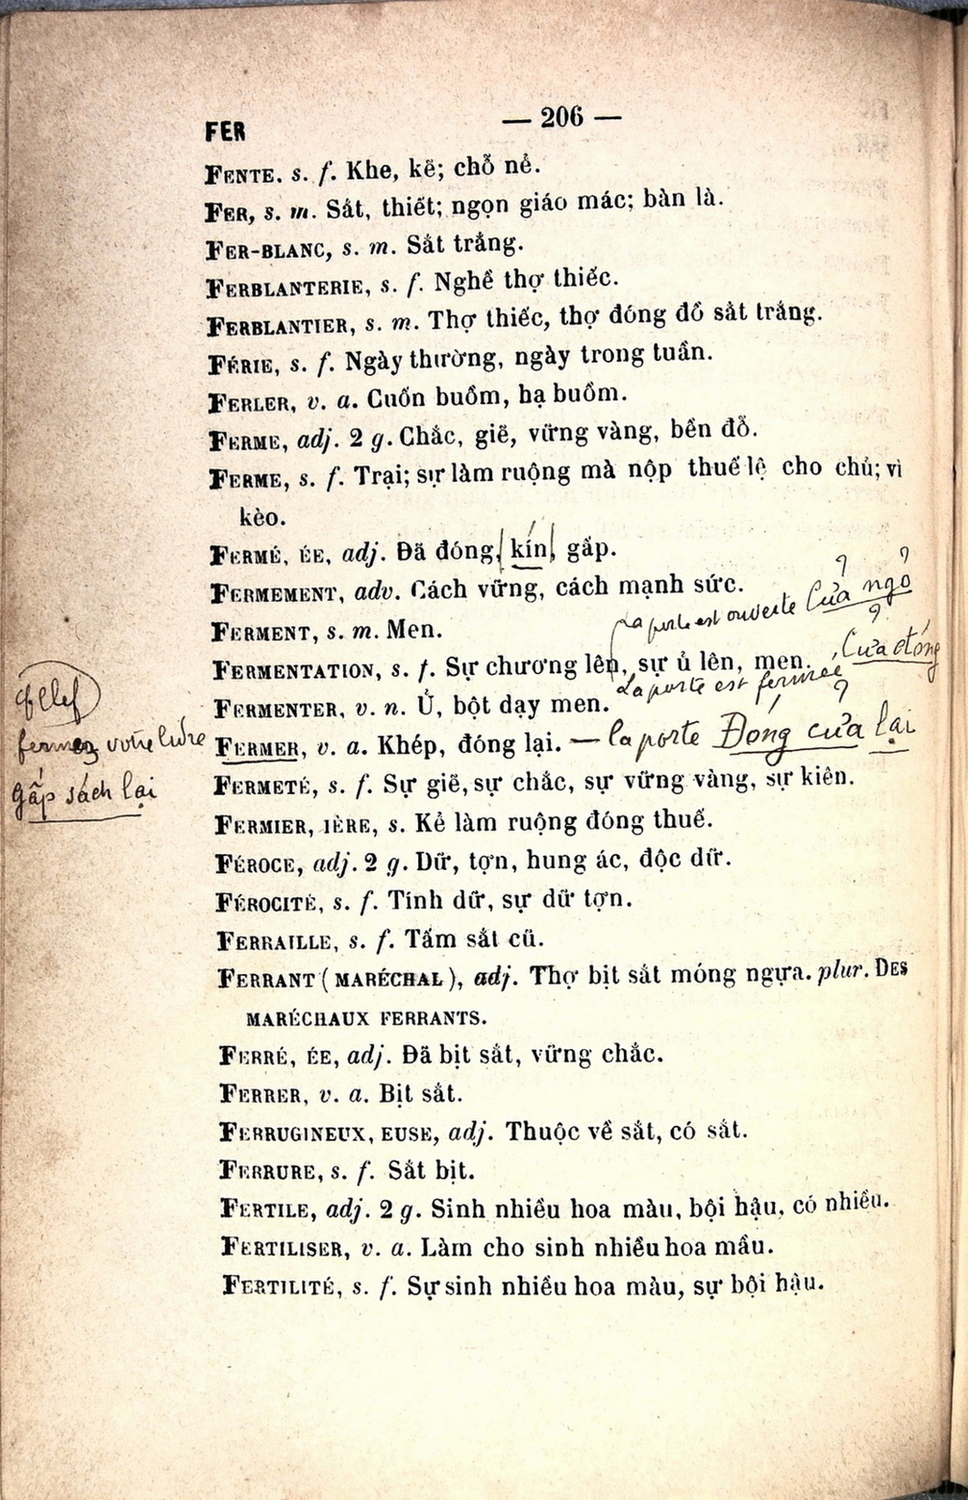 FER
— 206 —
FENTE. s. f. Khe, kẽ; chỗ nẻ.
FER, s. m. Sắt, thiết; ngọn giáo mác; bàn là.
FER-BLANC, s. m. Sắt trắng.
FERBLANTERIE, s. f. Nghề thợ thiếc.
FERBLANTIER, s. m. Thợ thiếc, thợ đóng đồ sắt trắng.
FÉRIE, s. f. Ngày thường, ngày trong tuần.
FERLER, v. a. Cuốn buồm, hạ buồm.
FERME, adj. 2 g. Chắc, giẽ, vững vàng, bền đỗ.
FERME, s. f. Trại; sự làm ruộng mà nộp thuế lệ cho chủ; vì
kèo.
FERMÉ, ÉE, adj. Đã đóng, kín, gấp.
FERMEMENT, adv. Cách vững, cách mạnh sức.
La porte est ouverte Cửa ngỏ
FERMENT, s. m. Men.
FERMENTATION, s. f. Sự chương lên, sự ủ lên, men.
La porte est fermée Cửa đóng
FERMENTER, v. n. Ủ, bột dạy men.
fermez votre livre
Gấp sách lại
FERMER, v. a. Khép, đóng lại. — la porte Đóng cửa lại
FERMETÉ, s. f. Sự giẽ, sự chắc, sự vững vàng, sự kiên.
FERMIER, IÈRE, s. Kẻ làm ruộng đóng thuế.
FÉROCE, adj. 2 g. Dữ, tợn, hung ác, độc dữ.
FÉROCITÉ, s. f. Tính dữ, sự dữ tợn.
FERRAILLE, s. f. Tấm sắt cũ.
FERRANT (MARÉCHAL), adj. Thợ bịt sắt móng ngựa. plur. DES
MARÉCHAUX FERRANTS.
FERRÉ, ÉE, adj. Đã bịt sắt, vững chắc.
FERRER, v. a. Bịt sắt.
FERRUGINEUX, EUSE, adj. Thuộc về sắt, có sắt.
FERRURE, s. f. Sắt bịt.
FERTILE, adj. 2 g. Sinh nhiều hoa màu, bội hậu, có nhiều.
FERTILISER, v. a. Làm cho sinh nhiều hoa mầu.
FERTILITÉ, s. f. Sự sinh nhiều hoa màu, sự bội hậu.